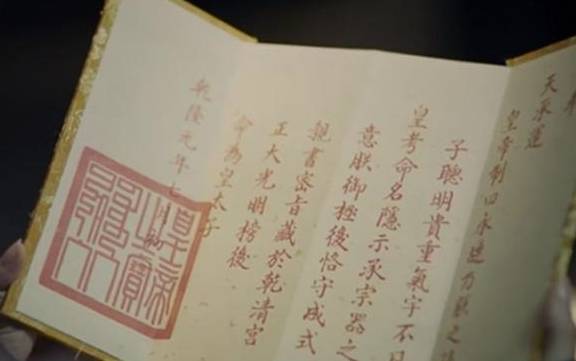 天承運
皇帝制曰永璉乃朕之
子聰明貴重氣宇不
皇考命名隱示承宗器之
意朕御極後恪守成式
親書密旨藏於乾清宮
正大光明榜後
命為皇太子
乾隆元年七月初
皇帝之寶